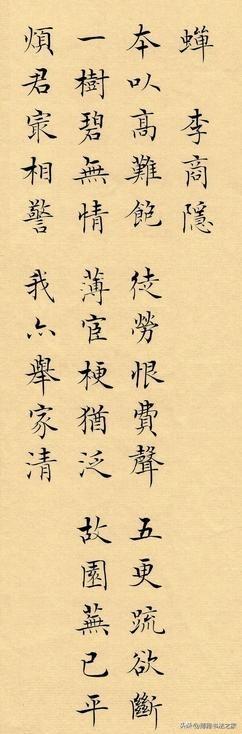 蟬 李商隱
本以高難飽 徒勞恨費聲 五更疏欲斷
一樹碧無情 薄宦梗猶泛 故園蕪已平
煩君最相警 我亦舉家清
头条 @书法之家